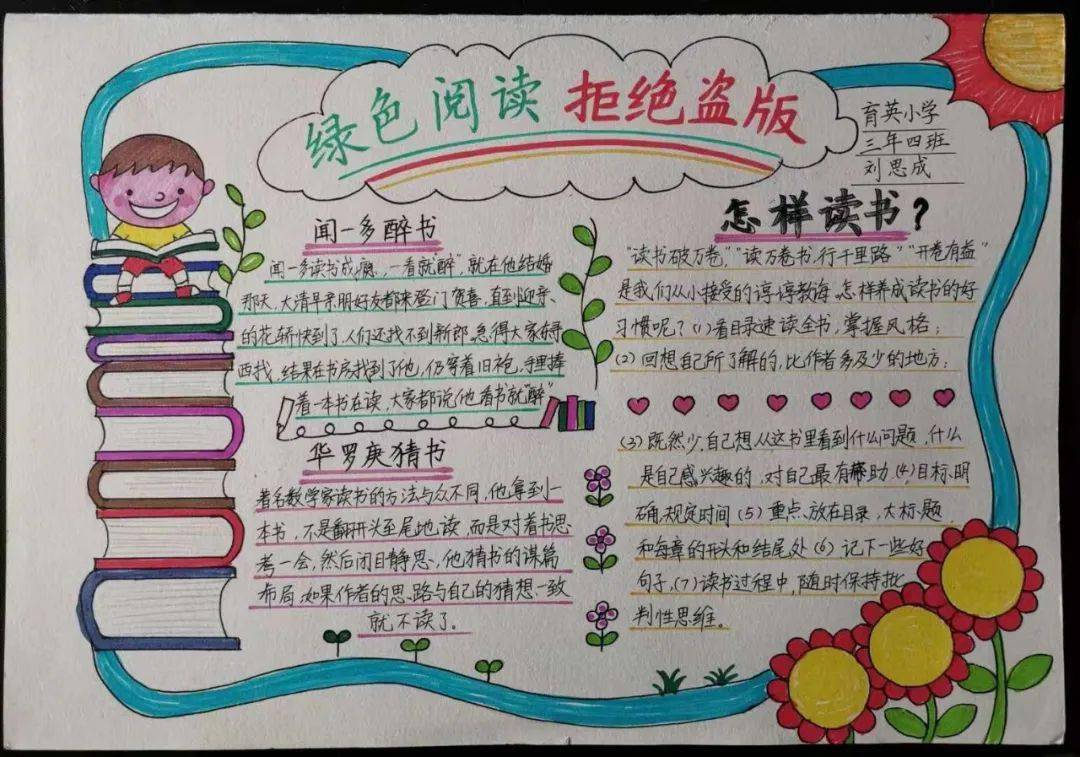 绿色阅读 拒绝盗版
育英小学
三年四班
刘思成
闻一多醉书
闻一多读书成瘾,一看就“醉”,就在他结婚
那天,大清早亲朋好友都来登门贺喜,直到迎亲、
的花轿快到了,人们还找不到新郎。急得大家东寻
西找,结果在书房找到了他,仍穿着旧袍,手里捧
着一本书在读,大家都说他看书就“醉”
华罗庚猜书
著名数学家读书的方法与众不同,他拿到一
本书,不是翻开头至尾地读,而是对着书思
考一会,然后闭目静思,他猜书的谋篇
布局,如果作者的思路与自己的猜想一致
就不读了。
怎样读书?
“读书破万卷,”“读万卷书,行千里路”“开卷有益”
是我们从小接受的谆谆教诲。怎样养成读书的好
习惯呢?(1)看目录速读全书,掌握风格;
(2)回想自己所了解的,比作者多及少的地方;
(3)既然少,自己想从这书里看到什么问题,什么
是自己感兴趣的,对自己最有帮助(4)目标,明
确,规定时间(5)重点、放在目录,大标题
和每章的开头和结尾处(6)记下一些好
句子,(7)读书过程中,随时保持批
判性思维。